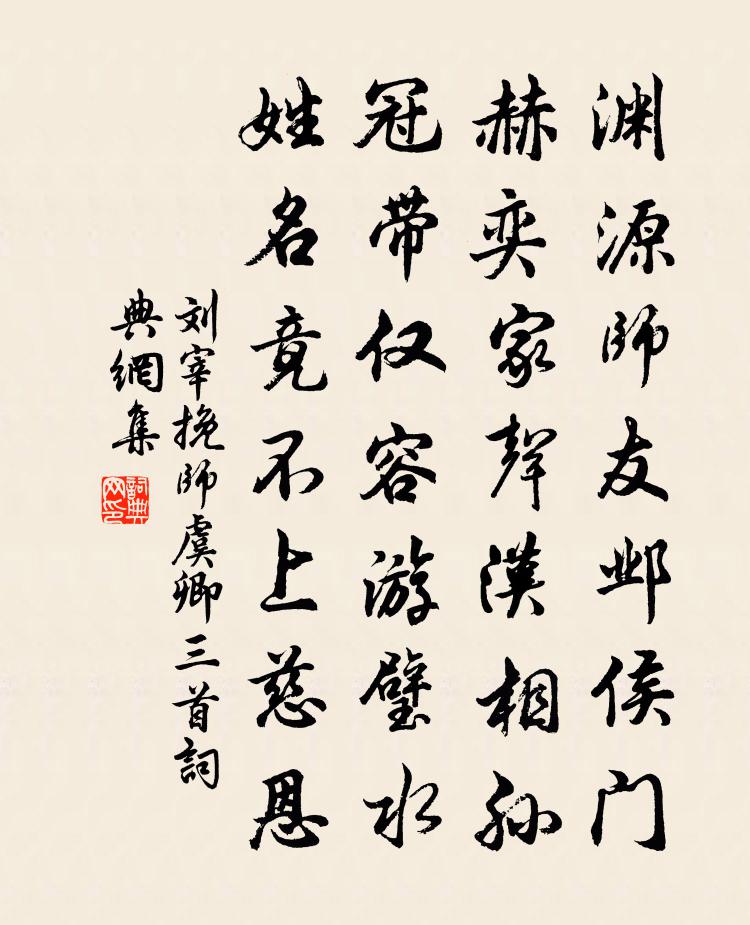 渊源师友邺侯门
赫奕家声汉相孙
冠带仅容游璧水
姓名竟不上慈恩
刘宰挽师虞卿三首詞
典網集
詞典网印